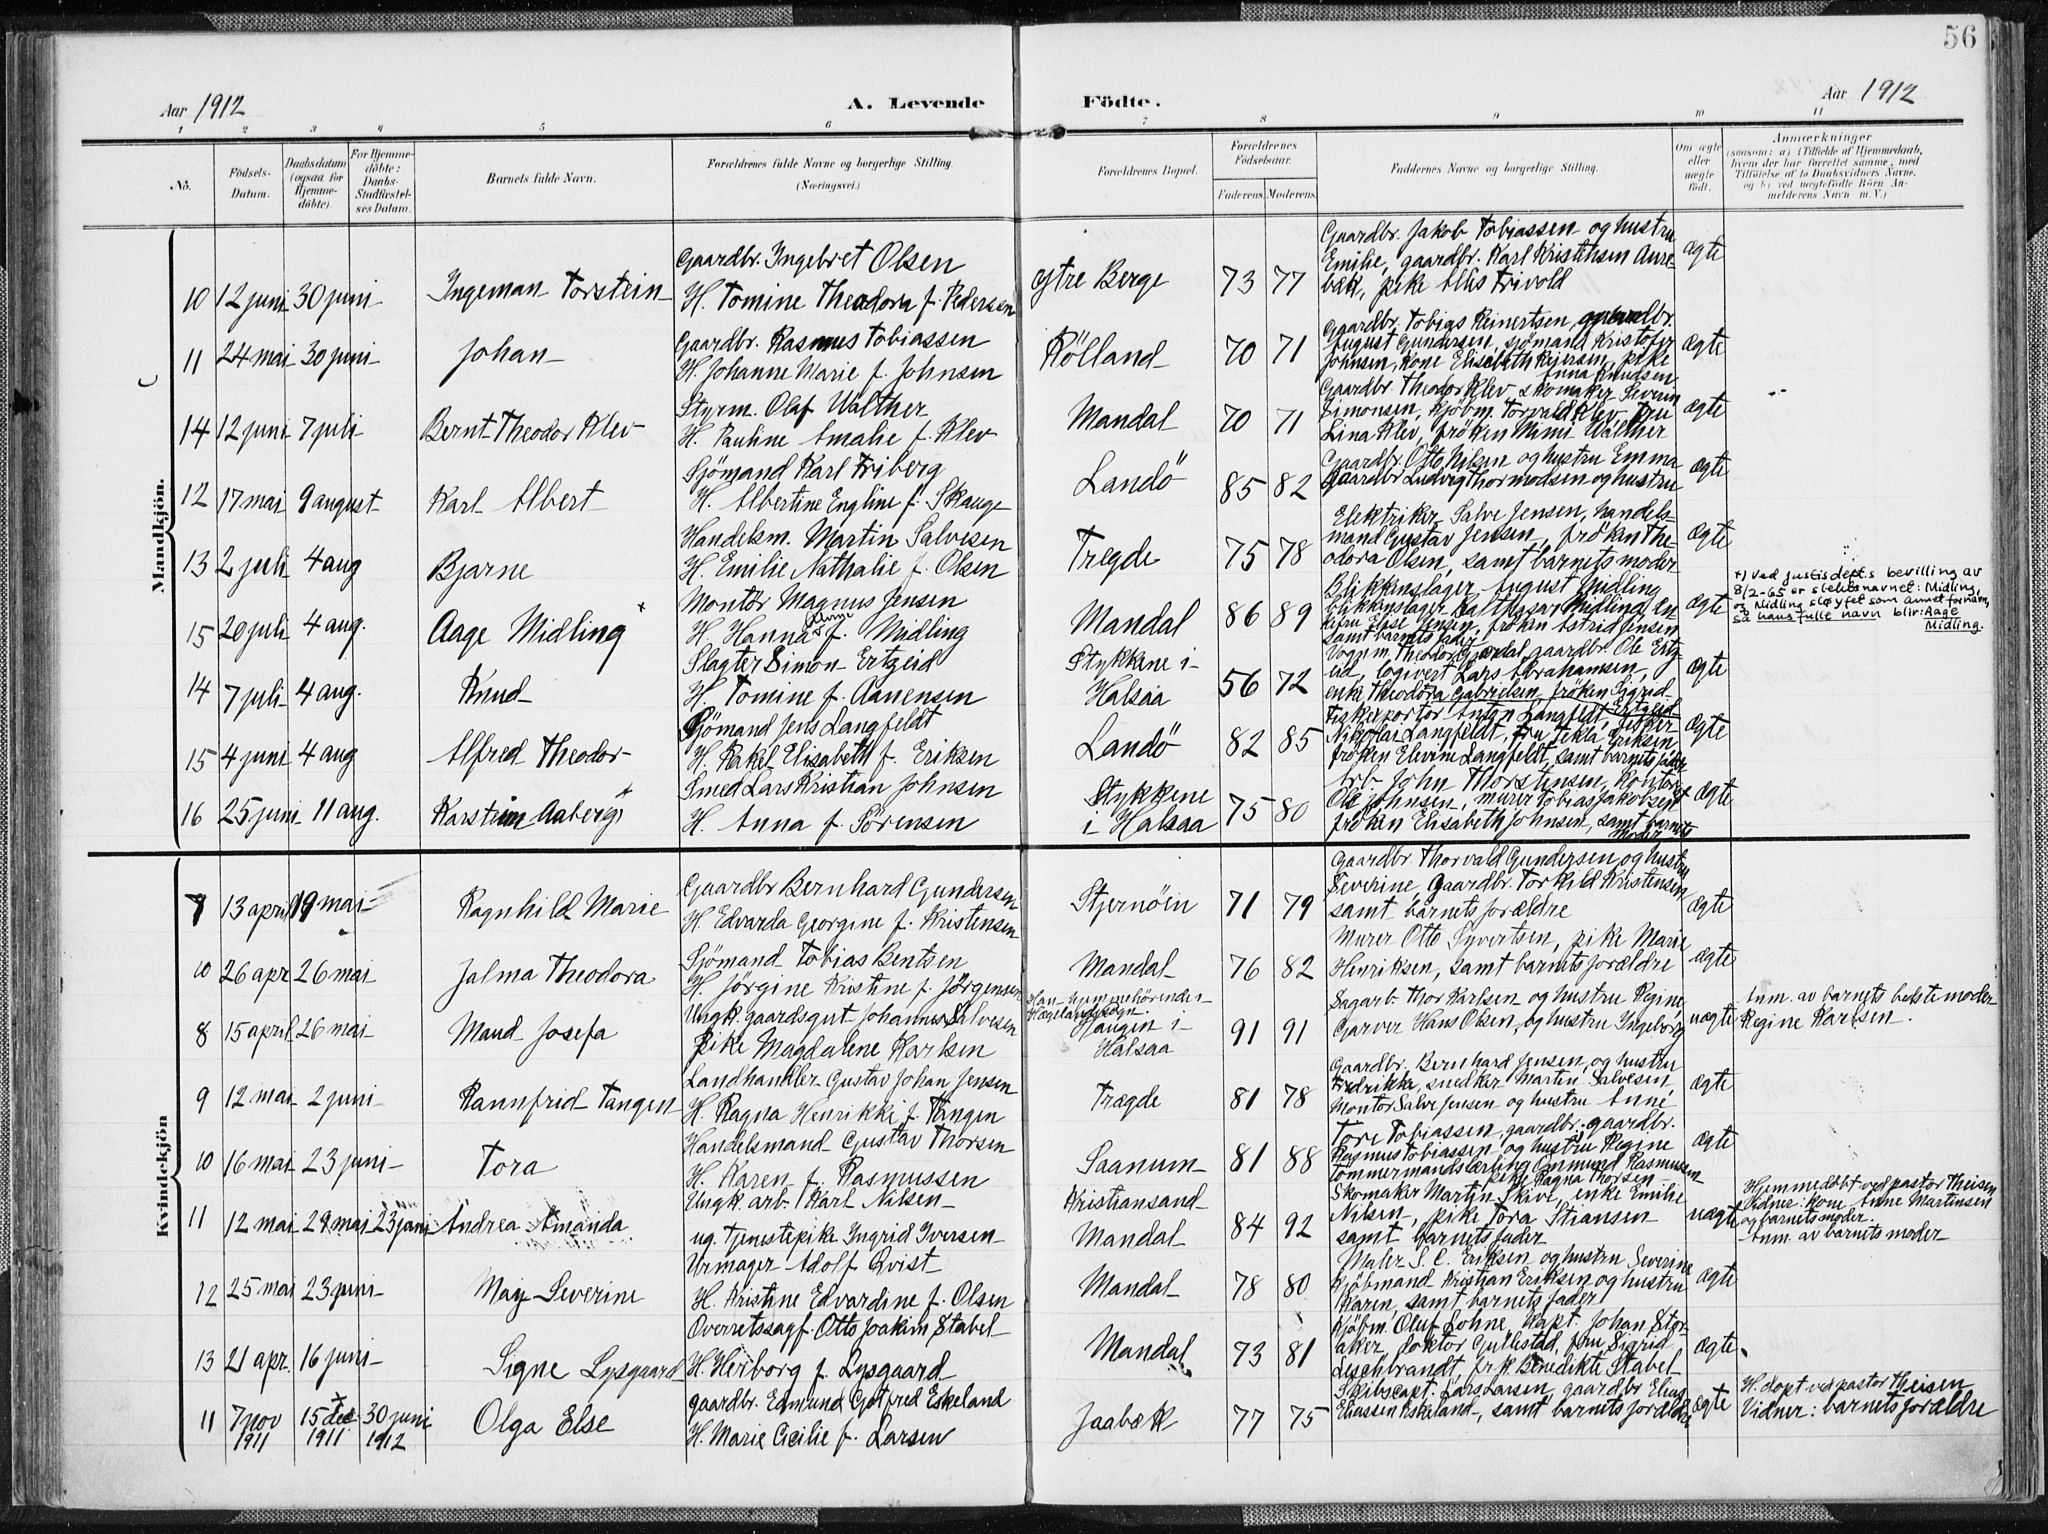 56
Aar 1912
A. Levende Födte.
Aar 1912
1 2 3 4 5 6 7 8 9 10 11
No.
Födsels-Datum.
Daabsdatum (ogsaa for Hjemme-döbte).
For Hjemme-döbte: Daabs-Stadfæstel-ses Datum.
Barnets fulde Navn.
Forældrenes fulde Navne og borgerlige Stilling. (Næringsvei.)
Forældrenes Bopæl.
Forældrenes Födselsaar.
Faderens. Moderens.
Faddernes Navne og borgerlige Stilling.
Om ægte eller uægte födt.
Anmærkninger
(saasom: a) i Tilfælde af Hjemmedaab, hvem der har forrettet samme, med Tilföielse af to Daabsvidners Navne, og b) ved uægtefödte Börn An-melderens Navn m. V.)
Mandkjön.
Gaardbr. Ingebret Olsen
10 12 juni 30 juni Ingeman Torstein H. Tomine Theodora f. Pedersen
ytre Berge 73 77 Gaardbr. Jakob Tobiassen og hustru
Emilie, gaardbr. Karl Kristensen Aure-
bæk, pike Alis Trivold ægte
Gaardbr. Rasmus Tobiassen
11 24 mai 30 juni Johan H. Johanne Marie f. Johnsen
Rölland 70 71 Gaardbr. Tobias Reinertsen, gaardbr.
August Gundersen, sjömand Kristofer
Johnsen, Kone Elisabeth Reiersen, pike
Anna Knudsen ægte
Styrm. Olaf Walther
14 12 juni 7 juli Bernt Theodor Klev H. Pauline Amalie f. Klev
Mandal 70 71 Gaardbr. Theodor Klev, skomaker Severin
Simonsen, kjöbm. Torvald Klev, Fru
Lina Klev, fröken Mimi Walther ægte
Sjömand Karl Friberg
12 17 mai 9 august Karl Albert H. Albertine Engline f. Skauge
Landö 85 82 Gaardbr. Otto Nilsen og hustru Emma
Gaardbr Ludvig Thormodsen og hustru ægte
Handelsm. Martin Salvesen
13 2 juli 4 aug Bjarne H. Emilie Nathalie f. Olsen
Tregde 75 78 Elektriker Salve Jensen, handels-
mand Gustav Jensen, fröken The-
odora Olsen, samt barnets moder ægte
Montör Magnus Jensen
15 20 juli 4 aug. Aage Midling x H. Hanna f. Midling
Mandal 86 89 Blikkenslager August Midling
blikkenslager Balthasar Midling, en-
kefru Else Jensen, fröken Astrid Jensen
samt barnets fader ægte
+) Ved Justisdept.s bevilling av
8/2-65 er slektsnavnet: Midling,
og Midling sløyfet som annet fornavn,
så hans fulle navn blir: Aage
Midling.
Slagter Simon Ertzeid
14 7 juli 4 aug. Knud H. Tomine f. Aanensen
Stykkene i
Halsaa 56 72 Vognm. Theodor Gjærdal, gaardbr. Ole Ertz-
eid, Logivert Lars Abrahamsen,
enke Theodora Gabrielsen, fröken Sigrid
Ertzeid ægte
Sjömand Jens Langfeldt
15 4 juni 4 aug Alfred Theodor H. Rakel Elisabeth f. Eriksen
Landö 82 85 Fiskeexportör Anton Langfeldt, fisker
Nikolai Langfeldt, fru Tekla Eriksen
fröken Elvine Langfeldt, samt barnets fader ægte
Smed Lars Kristian Johnsen
16 25 juni 11 aug. Karsten Aaberg x H. Anna f. Sörensen
Stykkene
i Halsaa 75 80 Arb. John Thorstensen, Kontor
Ole Johnsen, murer Tobias Jakobsen
fröken Elisabeth Johnsen, samt barnets
Moder ægte
Kvindekjön
Gaardbr Bernhard Gundersen
7 13 april 19 mai Ragnhild Marie H. Edvarda Georgine f. Kristensen
Stjernöin 71 79 Gaardbr. Thorvald Gundersen og hustru
Severine, Gaardbr. Torkild Kristensen,
samt barnets forældre ægte
Sjömand Tobias Bentsen
10 26 apr 26 mai Jalma Theodora H. Jörgine Kristine f. Jörgensen
Mandal 76 82 Murer Otto Syvertsen, pike Marie
Henriksen, samt barnets forældre ægte
Ungk. gaardsgut Johannes Salvesen
8 15 april 26 mai Maud Josefa Pike Magdalene Karlsen
Han hjemmehörende i
Hægelands sogn.
Haugen i
Halsaa 91 91 Sagarb. Thor Karlsen og hustru Regine,
Garver Hans Olsen og hustru Ingeborg uægte
Anm. av barnets bedstemoder
Regine Karlsen.
Landhandler Gustav Johan Jensen
9 12 mai 2 juni Rannfrid Tangen H. Ragna Henrikke f. Tangen
Trægde 81 78 Gaardbr. Bernhard Jensen, og hustru
Fredrikke, snedker Martin Salvesen,
Montör Salve Jensen og hustru Anne ægte
Handelsmand Gustav Thorsen
10 16 mai 23 juni Tora H. Karen f. Rasmussen
Saanum 81 88 Tore Tobiassen, gaardbr. gaardbr.
Rasmus Tobiassen og hustru Regine
tømmermandslærling Ommund Rasmussen
pike Ragna Thorsen ægte
Ungk. arb. Karl Nilsen
11 12 mai 29 mai 23 juni Andrea Amanda ug. Tjenestepike Ingrid Iversen
Kristiansand
Mandal 84 92 Skomaker Martin Skive, enke Emilie
Nilsen, pike Tora Stiansen
samt barnets fader uægte
Hjemmedöbt ved pastor Theisen
Vidner: Kone Anne Martinsen
og barnets moder.
Anm. av barnets moder
Urmager Adolf Qvist
12 25 mai 23 juni May Severine H. Kristine Edvardine f. Olsen
Mandal 78 80 Maler S. C. Eriksen og hustru Severine
Kjöbmand Kristian Eriksen og hustru
Karen, samt barnets fader ægte
Overretssagf. Otto Joakim Stabel
13 21 apr. 16 juni Signe Lysgaard H. Herborg f. Lysgaard
Mandal 73 81 Kjöbm. Oluf Lohne, Kapt. Johan Stor-
aker, doktor Gullestad, fru Sigrid
Leschbrandt, frk Benedikte Stabel ægte
gaardbr. Edmund Gotfred Eskeland
11 7 nov 1911 15 dec x 1911 30 juni 1912 Olga Else H. Marie Cicilie f. Larsen
Jaabæk 77 75 Skibscapt. Lars Larsen, gaardbr Elias
Eliassen Eskeland, samt barnets forældre ægte
H. döpt ved pastor Theisen
Vidner: barnets forældre